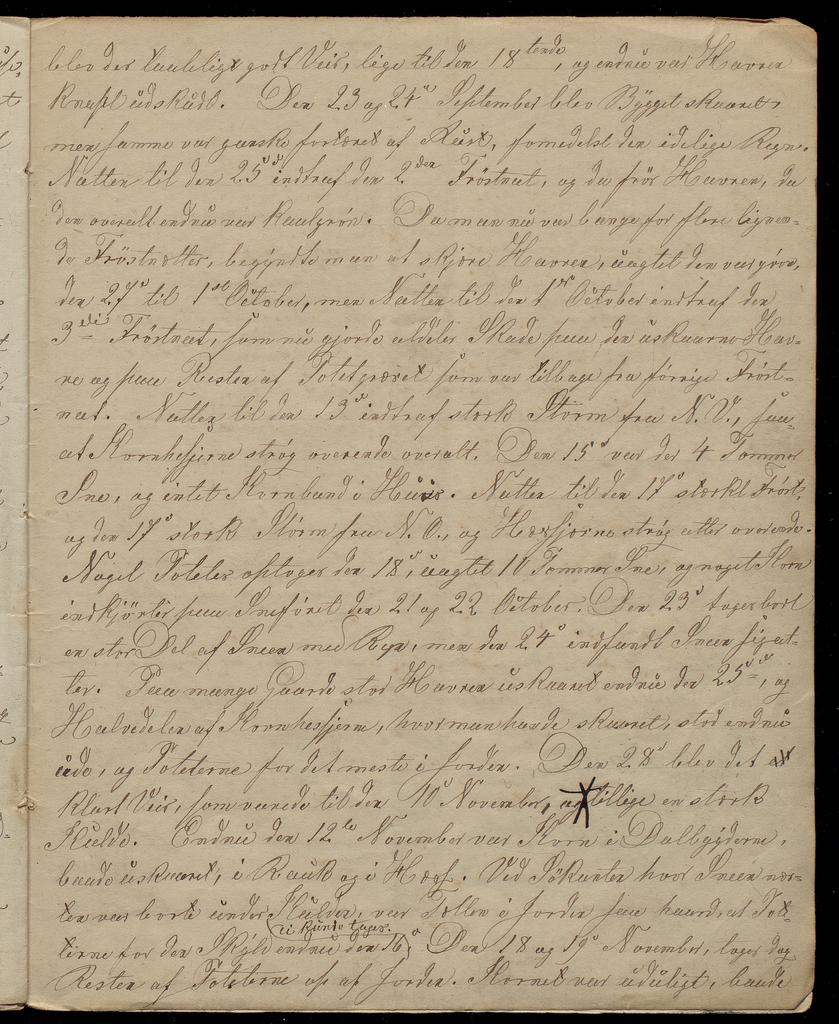 blev der taaleligt godt Veir, lige til den 18tende, og endnu var Havren
knapt udskudt. Den 23 og 24de September blev Bygget skaaret,
men samme var ganske fortæret af Rust, formedelst den idelige Regn.
Natten til den 25de indtraf den 2den Fröstnat, og da frös Havren, da
den overalt endnu var kaalgrön. Da man nu var bange for flere lignen-
de Fröstnætter, begyndte man at skjære Havren, uagtet den var grön,
den 27de til 1ste October, men Natten til den 1ste October indtraf den
3die Fröstnat, som nu gjorde aldeles Skade paa den uskaarne Hav-
re og paa Resten af Potetgræset som var tilbage fra forrige Fröst-
nat. Natten til den 13de indtraf stærk Storm fra N.V., saa-
at Kornhesjerne strög overende overalt. Den 15de var der 4 Tommer
Sne, og intet Kornband i Huus. Natten til den 17de stærkt Fröst,
og den 17de stærk Storm fra N.O., og Hæsjerne strög atter overende.
Noget Poteter optoges den 18de, uagtet 10 Tommer Sne, og noget Korn
indkjörtes paa Sneföret den 21 og 22 October. Den 23de toges bort
en stor Del af Sneen med Regn, men den 24de indfandt Sneen sig at-
ter. Paa mange Gaarde stod Havren uskaaret endnu den 25de, og
Halvedelen af Kornhesjerne, hvor man havde skaaret, stod endnu
ude, og Poteterne for det meste i Jorden. Den 28de blev det
klart Veir, som varede til den 10de November, og tillige en stærk
Kulde. Endnu den 12te November var Korn i Dalbygderne,
baade uskaaret, i Rauk og i Hæsj. Ved Sökanten hvor Sneen nær-
ten var borte under Kulden, var Tællen i Jorden saa haard, at Pot-
(i Runde Lager.
terne for den Skyld endnu den 16de) Den 18 og 19de November, toges dog
Resten af Poteterne op af Jorden. Kornet var uduligt, baade